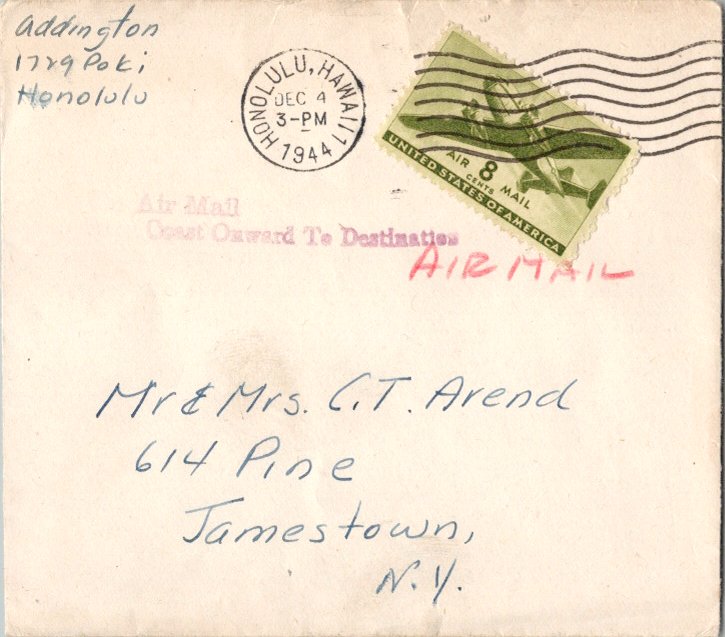 Addington
1729 Poki
Honolulu
HONOLULU, HAWAII
DEC 4
3-PM
1944
AIR 8 MAIL
CENTS
UNITED STATES OF AMERICA
Air Mail
Coast Onward To Destination
AIR MAIL
Mr & Mrs. C.T. Arend
614 Pine
Jamestown,
N.Y.